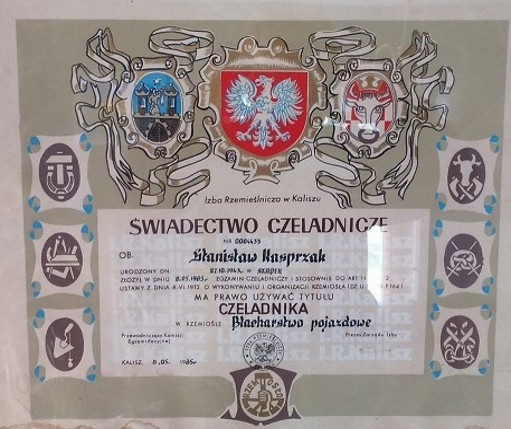 Izba Rzemieślnicza w Kaliszu
ŚWIADECTWO CZELADNICZE
NR 0004435
OB. Stanisław Kasprzak
URODZONY DN. W
ZŁOŻYŁ W DNIU 8.05.1985r. EGZAMIN CZELADNICZY I STOSOWNIE DO ART.
USTAWY Z DNIA 8.VI.1972 O WYKONYWANIU I ORGANIZACJI RZEMIOSŁA
MA PRAWO UŻYWAĆ TYTUŁU
CZELADNIKA
W RZEMIOŚLE Blacharstwo pojazdowe
Przewodniczący Komisji
Egzaminacyjnej
Prezes Zarządu Izby
KALISZ, 8.05. 1985r.